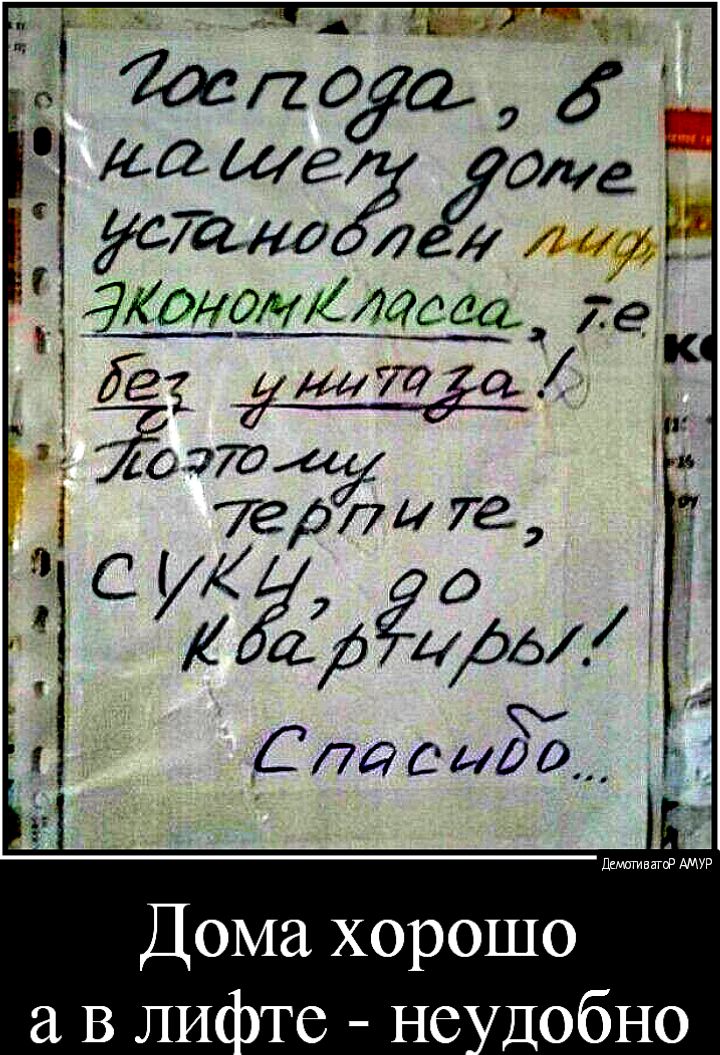 Господа, в
нашем доме
установлен лиф
экономкласса, т.е.
без унитаза!
Поэтому
терпите,
суки, до
квартиры!
Спасибо...
ДемотиватоР АМУР
Дома хорошо
а в лифте - неудобно